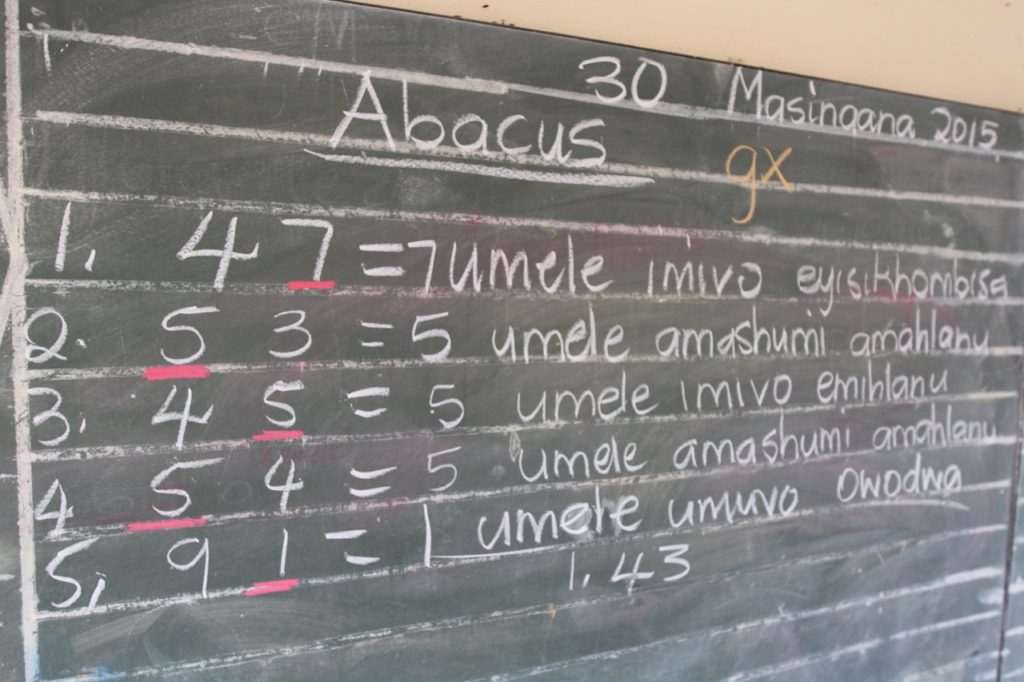 30 Masingana 2015
Abacus
gx
1. 4 7 = 7 umele imivo eyisikhombisa
2. 5 3 = 5 umele amashumi amahlanu
3. 4 5 = 5 umele imivo emihlanu
4. 5 4 = 5 umele amashumi amahlanu
5. 9 1 = 1 umele umuvo owodwa
1. 43